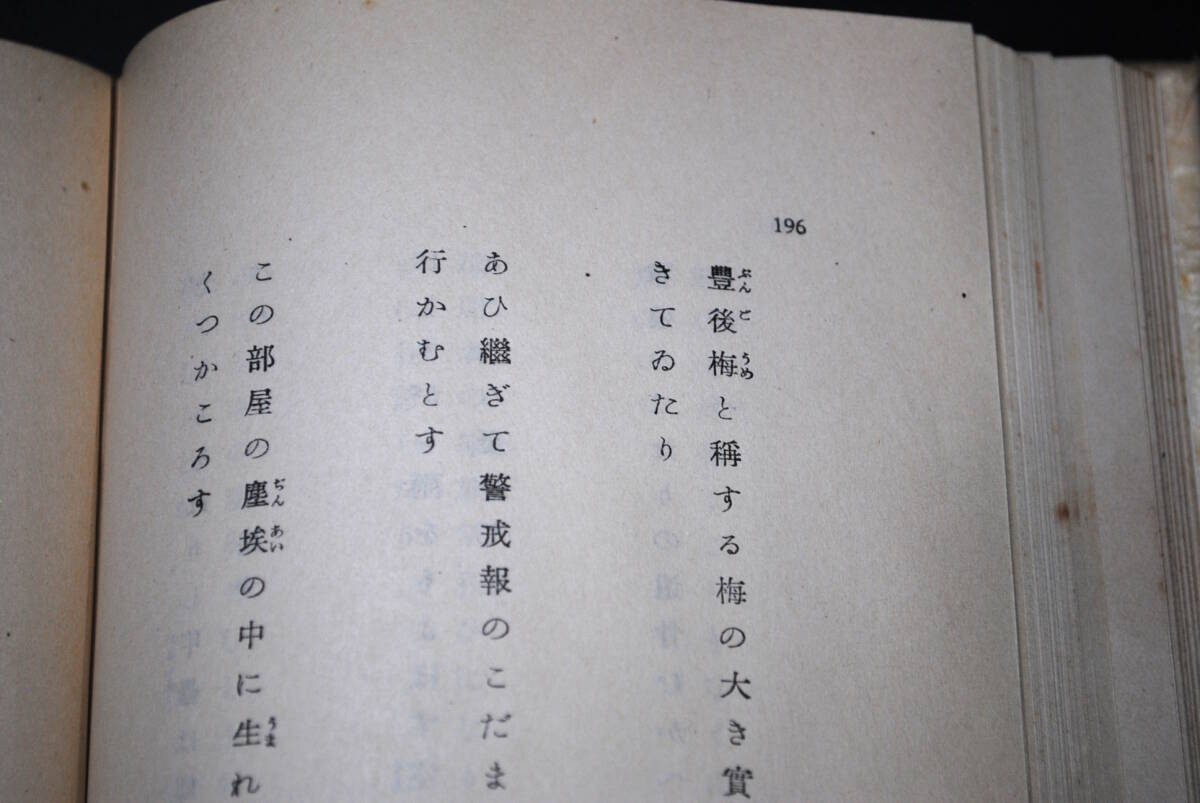 196
豊後梅と稱する梅の大き實
きてゐたり
あひ繼ぎて警戒報のこだま
行かむとす
この部屋の塵埃の中に生れ
くつかころす